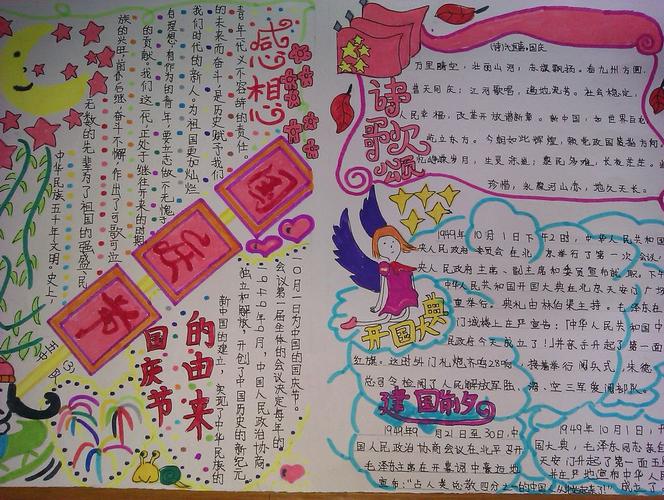 感想
中华民族五千年文明史上,
无数的先辈为了祖国的强盛,民
族的兴旺,前仆后继,奋斗不懈,作出了可歌可泣
的贡献。我们这一代,正处于继往开来的时期
有理想有作为的青年,要立志做个无愧于
我们时代的新人。为祖国更加灿烂
的未来而奋斗是历史赋予我们
青年一代义不容辞的责任。
国
庆
节
国庆节
的由来
新中国的建立,实现了中华民族的
独立和解放,开创了中国历史的新纪元
中国人民政治协商
会议第一届全体的会议决定每年的
10月1日为中国的国庆节。
诗歌颂
国庆
万里晴空,壮丽山河;赤旗飘扬。看九州方圆,
普天同庆;江河歌唱,遍地流芳。社会稳定,
人民幸福,改革开放谱新章。新中国,如世界巨
屹立东方。今朝如此辉煌,
岁月,生灵涂炭;农民多难,长夜茫茫。
珍惜;永葆河山恋,地久天长。
开国大典
1949年10月1日下午2时,中华人民共和国
央人民政府委员会在北京举行了第一次会议,
央人民政府主席、副主席和委员宣布就职。下午
中华人民共和国开国大典在北京天安门广场
重举行。典礼由林伯渠主持。毛泽东在
门城楼上庄严宣告:“中华人民共和国中
民政府今天成立了!”并亲手升起了第一面
红旗。这时外门礼炮齐鸣28响,接着举行阅兵式,朱德
总司令检阅了人民解放军陆、海、空三军受阅部队。
建国前夕
1949年9月21日至30日,中
政治协商会议在北平召开
毛泽东主席在开幕词中豪迈地
宣布:“占人类总数四分之一的中国人从此站起来了!”
1949年10月1日,
国大典,毛泽东同志亲自
安门升起了第一面五
庄严地宣布中华人民
成立了